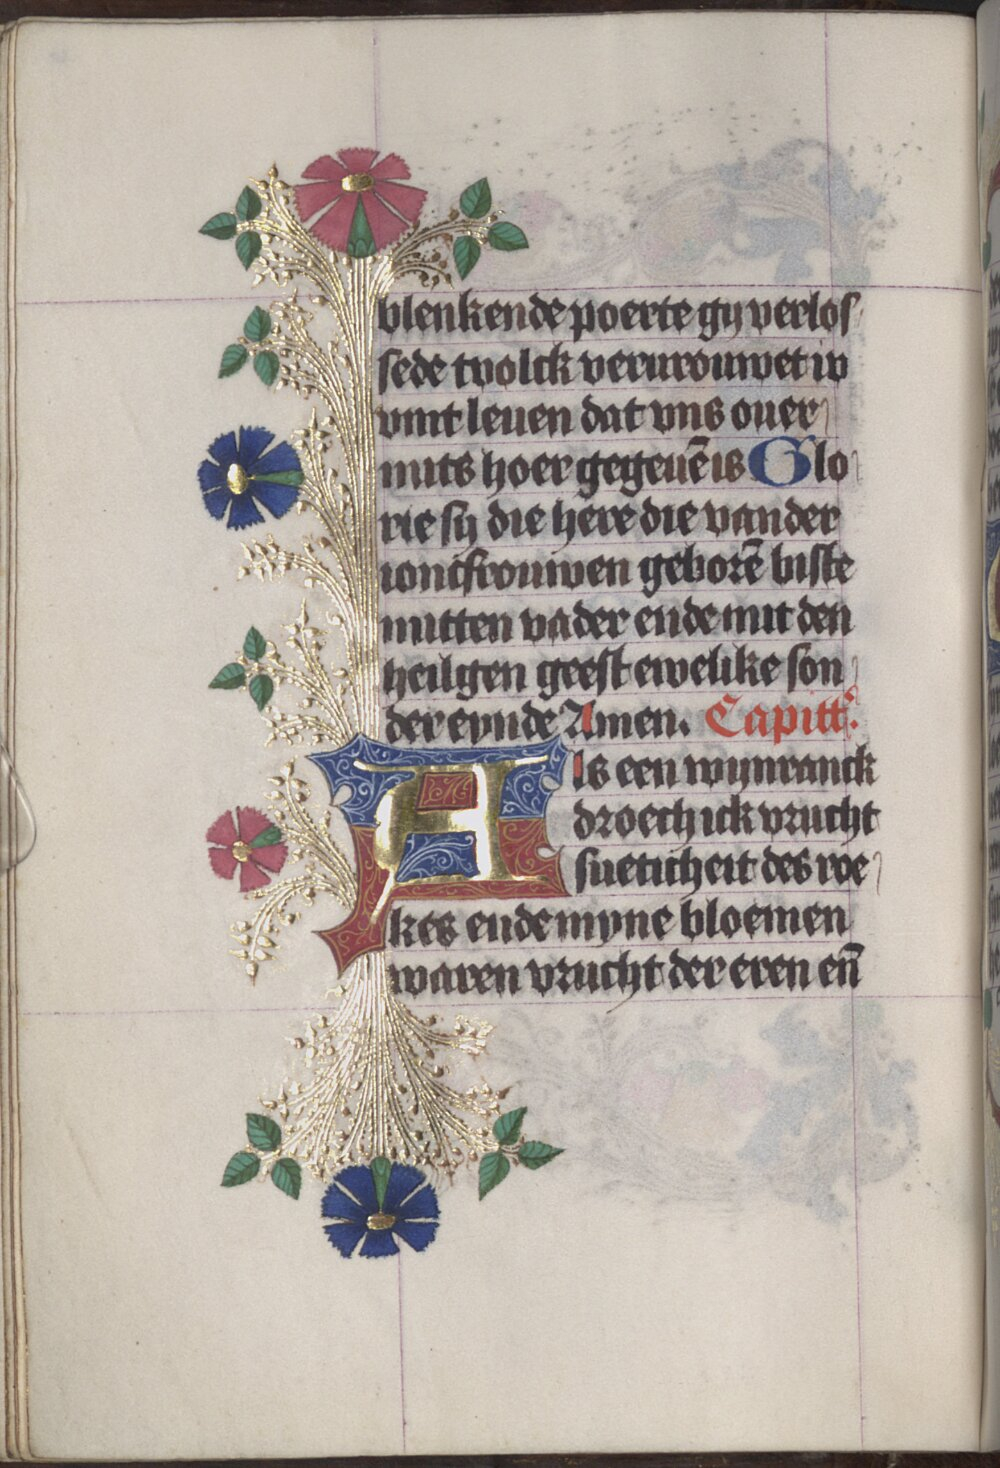 blenkende poerte gy verlos
sede tvolck vervrouwet in
vint leuen dat vns ouer
mits hoer gegeuē is Glo
rie sy die here die vander
ioncfrouwen geborē biste
mitten vader ende mit den
heilgen geest ewelike son
der eynde Amen. Capitt.
Als een wijnranck
droech ick vrucht
sueticheit des roe
kes ende myne bloemen
waren vrucht der eren eñ